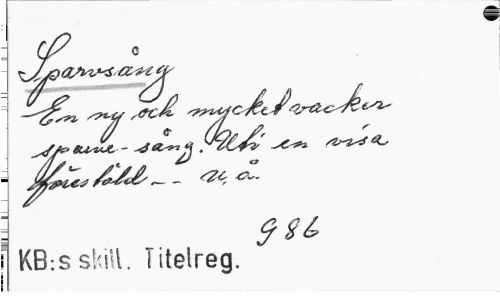 Sparvsång
En ny och mycket vacker
sparve-sång. Uti en visa
föreställd -- u.å.
G 86
KB:s skill. Titelreg.